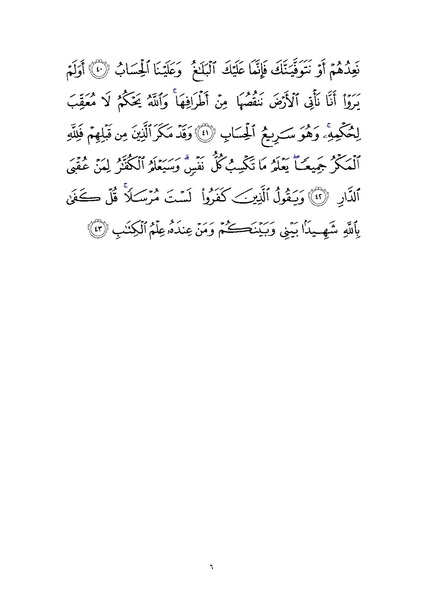 نَعِدُهُمْ أَوْ نَتَوَفَّيَنَّكَ فَإِنَّمَا عَلَيْكَ ٱلْبَلَٰغُ وَعَلَيْنَا ٱلْحِسَابُ ۝٤٠ أَوَلَمْ
يَرَوْا۟ أَنَّا نَأْتِى ٱلْأَرْضَ نَنقُصُهَا مِنْ أَطْرَافِهَا ۚ وَٱللَّهُ يَحْكُمُ لَا مُعَقِّبَ
لِحُكْمِهِۦ ۚ وَهُوَ سَرِيعُ ٱلْحِسَابِ ۝٤١ وَقَدْ مَكَرَ ٱلَّذِينَ مِن قَبْلِهِمْ فَلِلَّهِ
ٱلْمَكْرُ جَمِيعًا ۖ يَعْلَمُ مَا تَكْسِبُ كُلُّ نَفْسٍ ۗ وَسَيَعْلَمُ ٱلْكُفَّٰرُ لِمَنْ عُقْبَى
ٱلدَّارِ ۝٤٢ وَيَقُولُ ٱلَّذِينَ كَفَرُوا۟ لَسْتَ مُرْسَلًا ۚ قُلْ كَفَىٰ
بِٱللَّهِ شَهِيدًۢا بَيْنِى وَبَيْنَكُمْ وَمَنْ عِندَهُۥ عِلْمُ ٱلْكِتَٰبِ ۝٤٣
٦